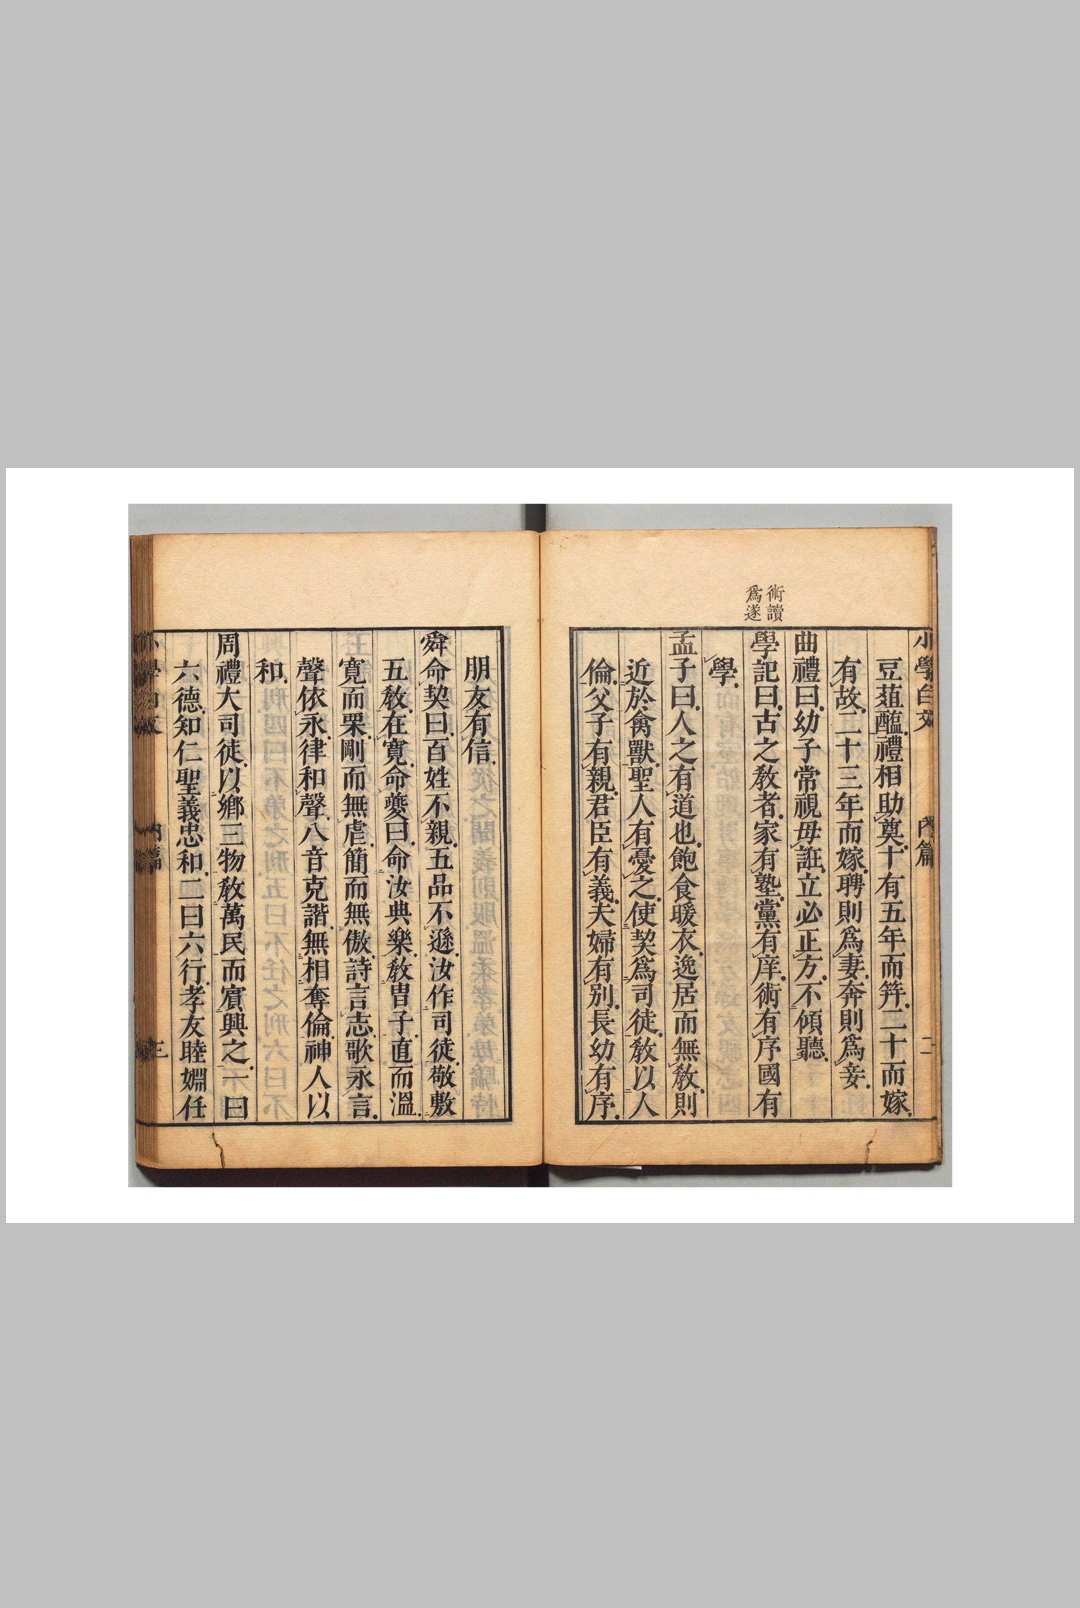 術讀
爲遂
小學白文 內篇 二
豆葅醢禮相助奠十有五年而笄二十而嫁
有故二十三年而嫁聘則爲妻奔則爲妾
曲禮曰幼子常視毋誑立必正方不傾聽
學記曰古之敎者家有塾黨有庠術有序國有
學
孟子曰人之有道也飽食暖衣逸居而無敎則
近於禽獸聖人有憂之使契爲司徒敎以人
倫父子有親君臣有義夫婦有别長幼有序
朋友有信
舜命契曰百姓不親五品不遜汝作司徒敬敷
五敎在寬命夔曰命汝典樂敎胄子直而溫
寬而栗剛而無虐簡而無傲詩言志歌永言
聲依永律和聲八音克諧無相奪倫神人以
和
周禮大司徒以鄉三物敎萬民而賓興之一曰
六德知仁聖義忠和二曰六行孝友睦婣任
小學白文 內篇 三